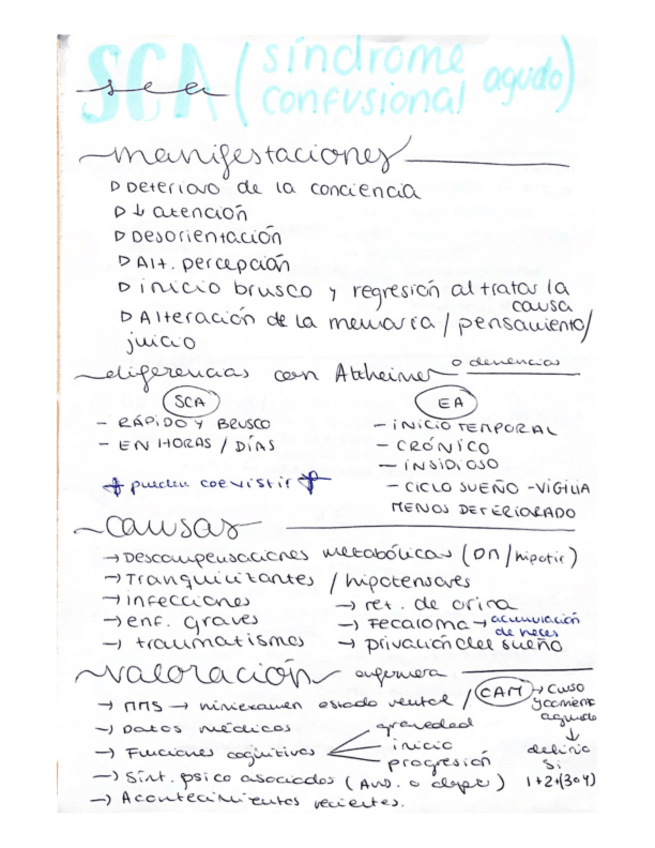 SCA (síndrome confusional agudo)
sca
manifestaciones
▷ Deterioro de la conciencia
▷ ↓ atención
▷ Desorientación
▷ Alt. percepción
▷ inicio brusco y regresión al tratar la causa
▷ Alteración de la memoria / pensamiento /
juicio
diferencias con Alzheimer o demencias
SCA
- RÁPIDO Y BRUSCO
- EN HORAS / DÍAS
+ pueden coexistir +
EA
- INICIO TEMPORAL
- CRÓNICO
- INSIDIOSO
- CICLO SUEÑO - VIGILIA
MENOS DETERIORADO
causas
→ Descompensaciones metabólicas (DM / hipotir)
→ Tranquilizantes / hipotensores
→ infecciones
→ enf. graves
→ traumatismos
→ ret. de orina
→ Fecaloma → acumulación
de heces
→ privación del sueño
valoración enfermera
→ MMS → miniexamen estado mental / CAM → Curso
y comienzo
agudo
↓
delirio
si
1+2+(3 o 4)
→ Datos médicos
→ Funciones cognitivas
gravedad
inicio
progresión
→ Sínt. psico asociados (Ans. o depr)
→ Acontecimientos recientes.